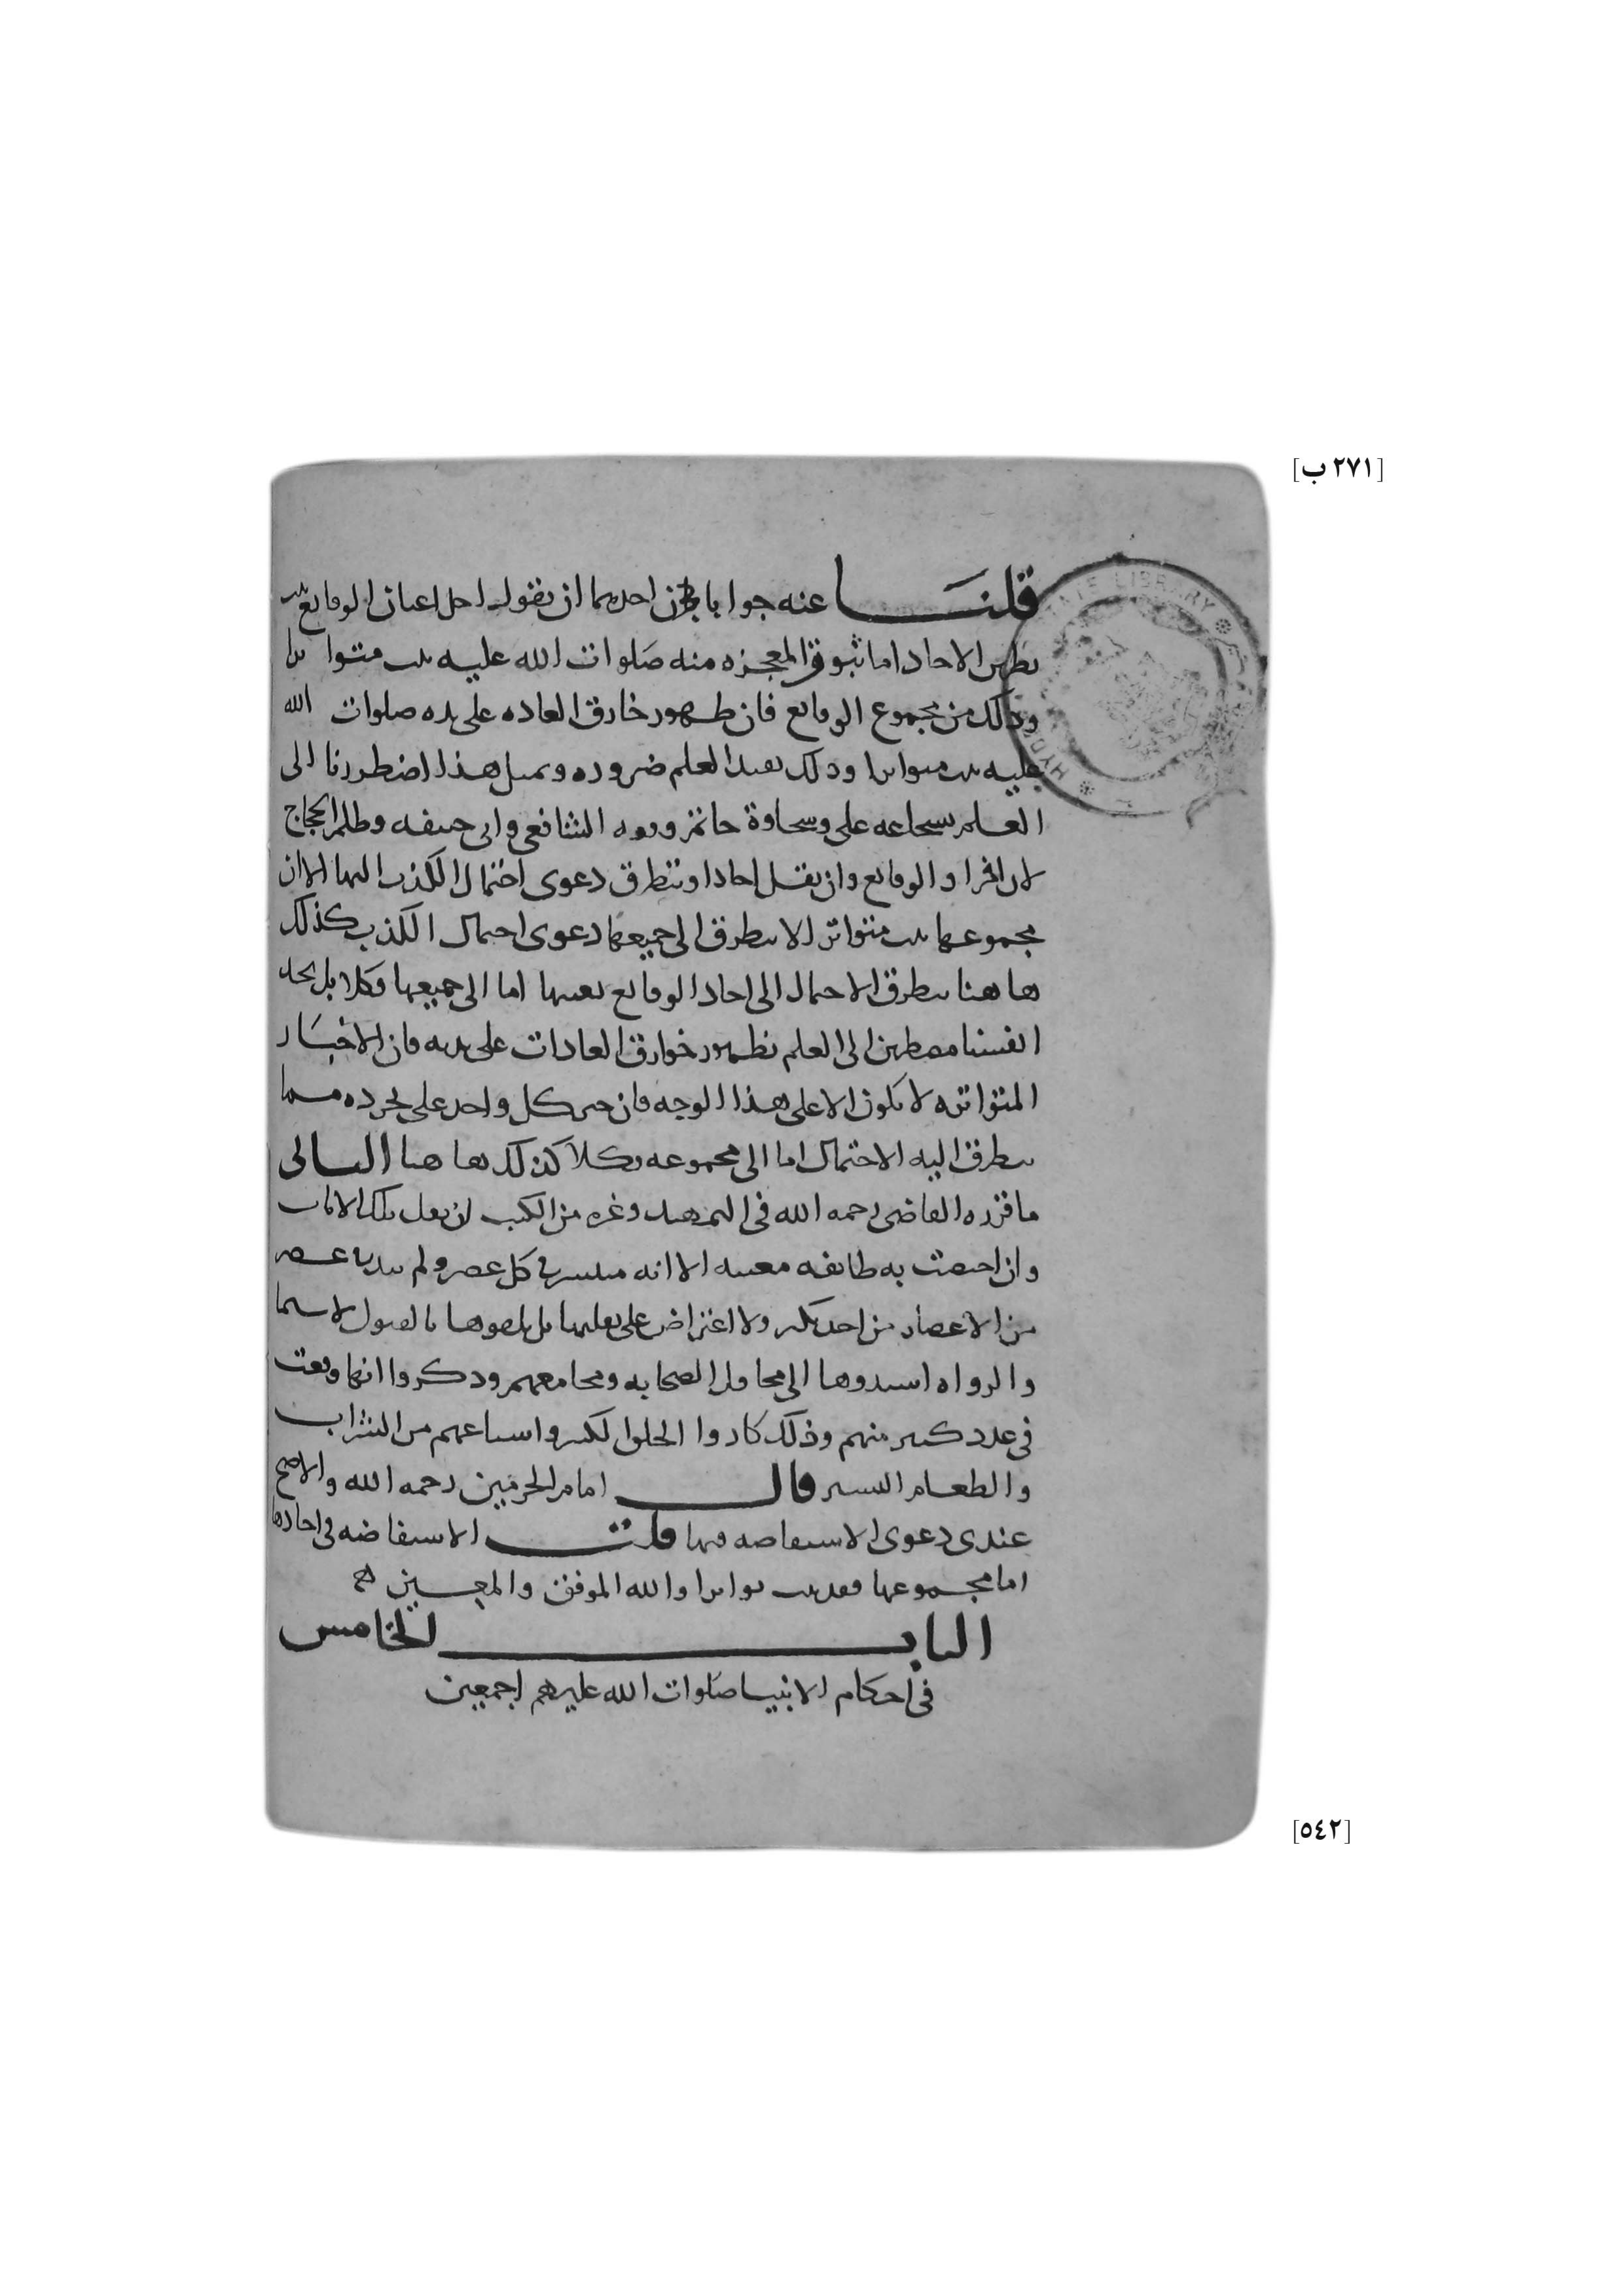 [٢٧١ ب]
قلنا عنه جوابان احدهما ان نقول احل اعيان الوقايع ثبت
بطريق الاحاد اما ثبوت المعجزه منه صلوات الله عليه ثبت متواترا
وذلك من مجموع الوقايع فان ظهور خارق العاده على يده صلوات الله
عليه ثبت متواترا وذلك يفيد العلم ضروره وبمثل هذا اضطررنا الى
العلم بشجاعه على وسخاوة حاتم وفقه الشافعى وابى حنيفه وظلم الحجاج
لان افراد الوقايع وان نقل احادا وتتطرق دعوى احتمال الكذب اليها الا ان
مجموعها ثبت متواترا لا يتطرق الى جميعها دعوى احتمال الكذب كذلك
ها هنا يتطرق الاحتمال الى احاد الوقايع بعينها اما الى جميعها فكلا بل نجد
انفسنا مضطرين الى العلم بظهور خوارق العادات على يديه فان الاخبار
المتواتره لا يكون الا على هذا الوجه فان خبر كل واحد على تجرده مما
يتطرق اليه الاحتمال اما الى مجموعه فكلا كذلك ها هنا الثانى
ما قرره القاضى رحمه الله فى التمهيد وغيره من الكتب ان نقل تلك الايات
وان اختصت به طائفه معينه الا انه منتشر فى كل عصر ولم يبد به عصر
من الاعصار من احد نكير ولا اعتراض على نقلتها بل تلقوها بالقبول لا سيما
والرواه اسندوها الى محافل الصحابه ومجامعهم وذكروا انها وقعت
فى عدد كثير منهم وذلك كما رووا الخلق الكثير واشباعهم من الشراب
والطعام اليسير قال امام الحرمين رحمه الله والاصح
عندى دعوى الاستفاضه فيها قلت الاستفاضه فى احادها
اما مجموعها فقد ثبت تواترا والله الموفق والمعين
الباب الخامس
فى احكام الانبيا صلوات الله عليهم اجمعين
[٥٤٢]